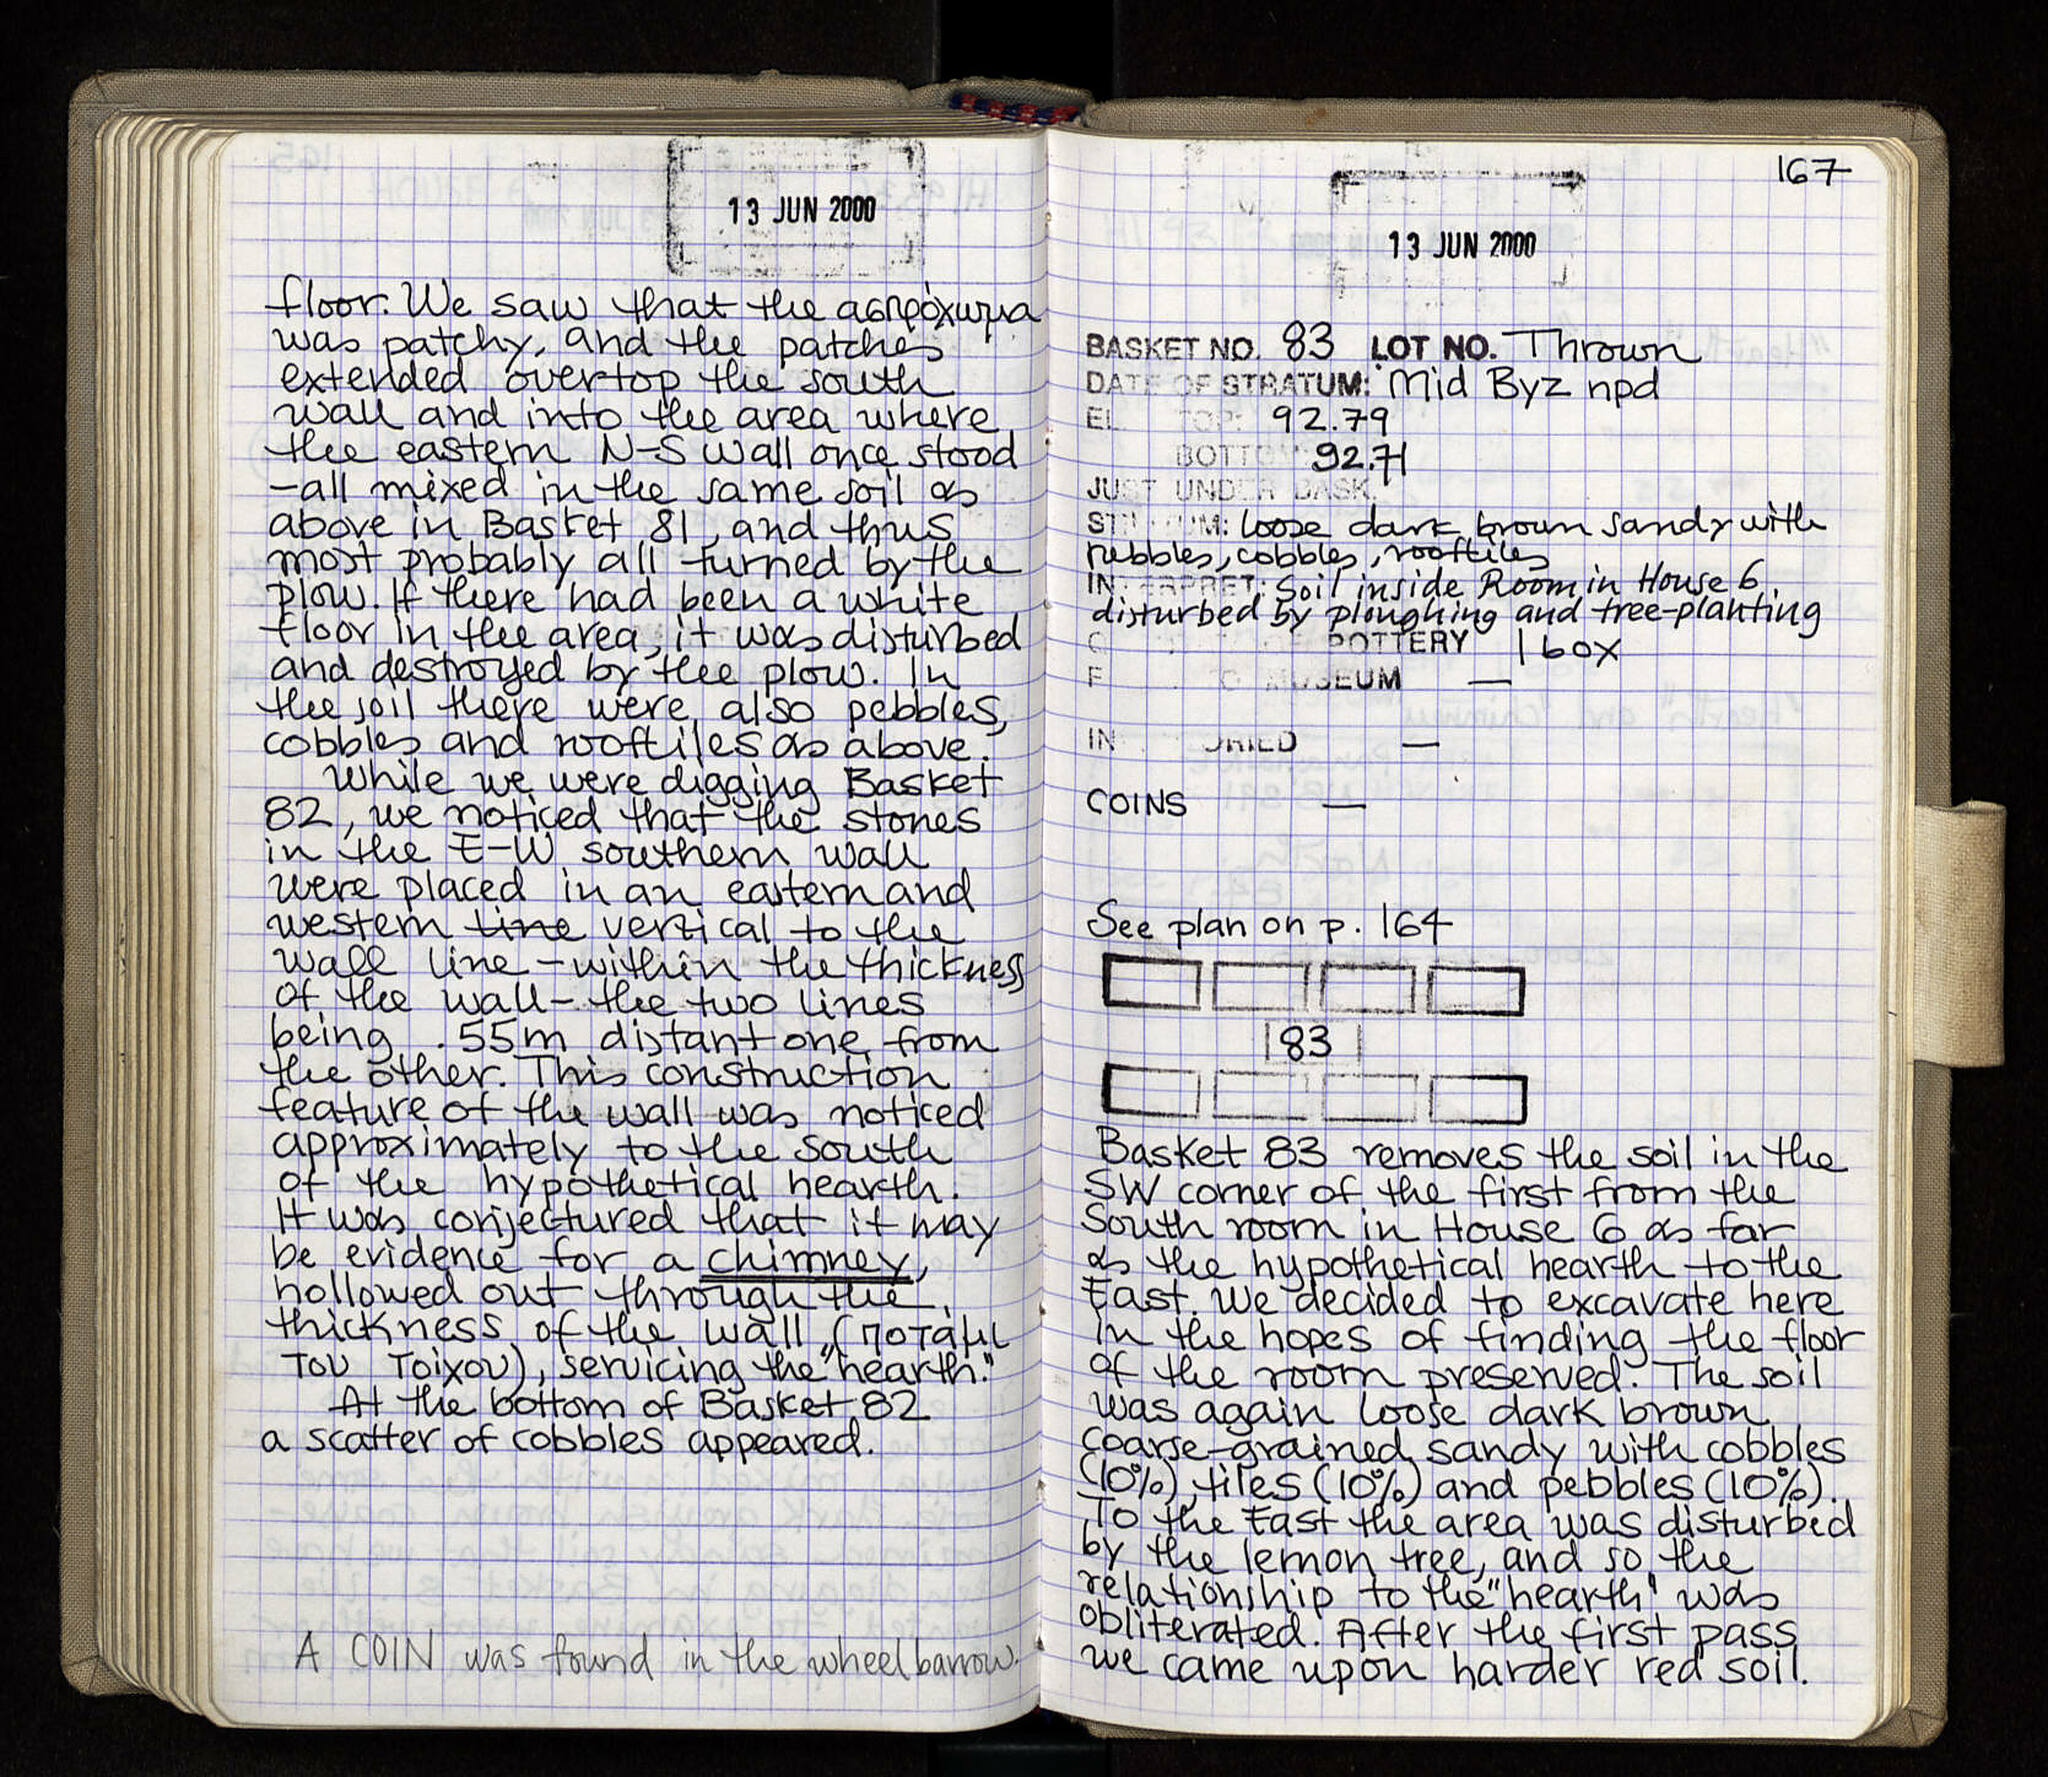 13 JUN 2000
floor. We saw that the ασπρόχωμα
was patchy, and the patches
extended overtop the south
wall and into the area where
the eastern N-S wall once stood
-all mixed in the same soil as
above in Basket 81, and thus
most probably all turned by the
plow. If there had been a white
floor in the area, it was disturbed
and destroyed by the plow. In
the soil there were also pebbles,
cobbles and rooftiles as above.
While we were digging Basket
82, we noticed that the stones
in the E-W southern wall
were placed in an eastern and
western line vertical to the
wall line - within the thickness
of the wall - the two lines
being .55m distant one from
the other. This construction
feature of the wall was noticed
approximately to the south
of the hypothetical hearth.
It was conjectured that it may
be evidence for a chimney,
hollowed out through the
thickness of the wall (ποτάμι
του τοίχου), servicing the "hearth."
At the bottom of Basket 82
a scatter of cobbles appeared.
A COIN was found in the wheelbarrow.
167
13 JUN 2000
BASKET NO. 83 LOT NO. Thrown
DATE OF STRATUM: Mid Byz npd
EL. TOP: 92.79
BOTTOM 92.71
JUST UNDER BASK.
STRATUM: loose dark brown sandy with
pebbles, cobbles, rooftiles
INTERPRET: Soil inside Room in House 6
disturbed by ploughing and tree-planting
POTTERY 1 box
MUSEUM —
—
COINS —
See plan on p. 164
83
Basket 83 removes the soil in the
SW corner of the first from the
South room in House 6 as far
as the hypothetical hearth to the
East. We decided to excavate here
in the hopes of finding the floor
of the room preserved. The soil
was again loose dark brown
coarse-grained sandy with cobbles
(10%), tiles (10%) and pebbles (10%).
To the East the area was disturbed
by the lemon tree, and so the
relationship to the "hearth" was
obliterated. After the first pass
we came upon harder red soil.